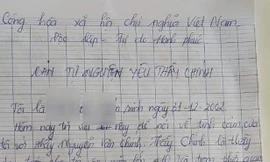 Cộng hòa xã hội chủ nghĩa Việt Nam
Độc lập - Tự do Hạnh phúc
BẢN TỰ NGUYỆN YÊU THẦY CHÍNH
Tôi là sinh ngày 31-12-2002
Hôm nay tôi viết này để nói về tình cảm của
tôi với thầy Nguyễn Văn Chính. Thầy Chính là thầy